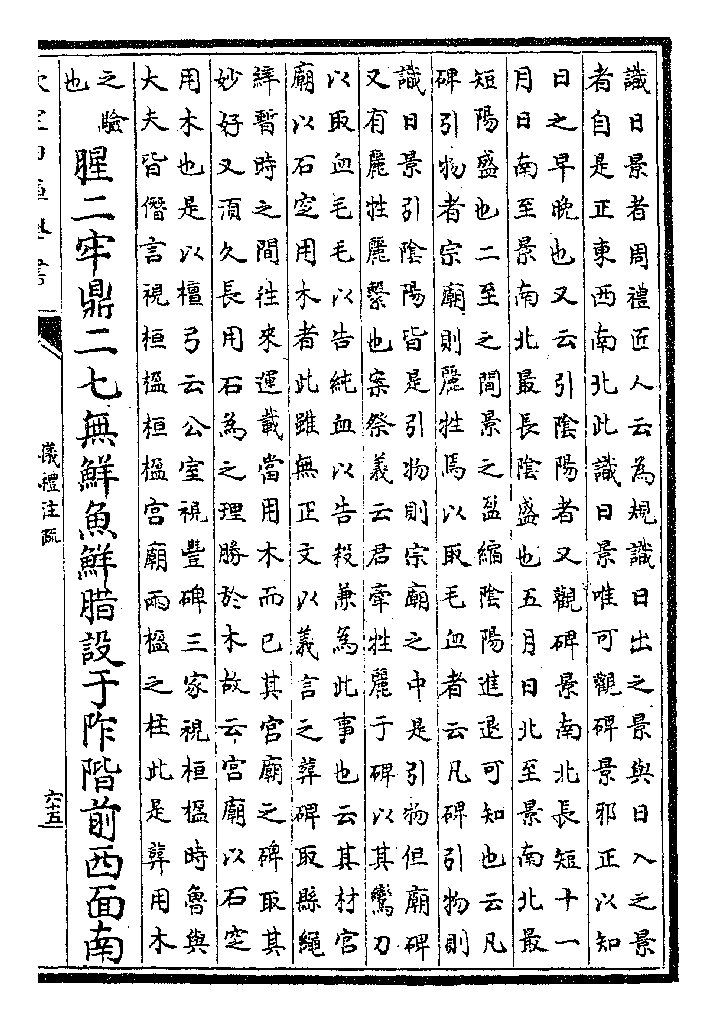 識日景者周禮匠人云為規識日出之景與日入之景
者自是正東西南北此識日景唯可觀碑景邪正以知
日之早晚也又云引陰陽者又觀碑景南北長短十一
月日南至景南北最長陰盛也五月日北至景南北最
短陽盛也二至之間景之盈縮陰陽進退可知也云凡
碑引物者宗廟則麗牲焉以取毛血者云凡碑引物則
識日景引陰陽皆是引物則宗廟之中是引物但廟碑
又有麗牲麗繫也案祭義云君牽牲麗于碑以其鸞刀
以取血毛毛以告純血以告殺兼為此事也云其材宮
廟以石窆用木者此雖無正文以義言之葬碑取縣繩
繂暫時之間往來運載當用木而已其宮廟之碑取其
妙好又須久長用石為之理勝於木故云宮廟以石窆
用木也是以檀弓云公室視豐碑三家視桓楹時魯與
大夫皆僭言視桓楹桓楹宮廟兩楹之柱此是葬用木
之驗
也
腥二牢鼎二七無鮮魚鮮腊設于阼階前西面南
儀禮注疏
六十五